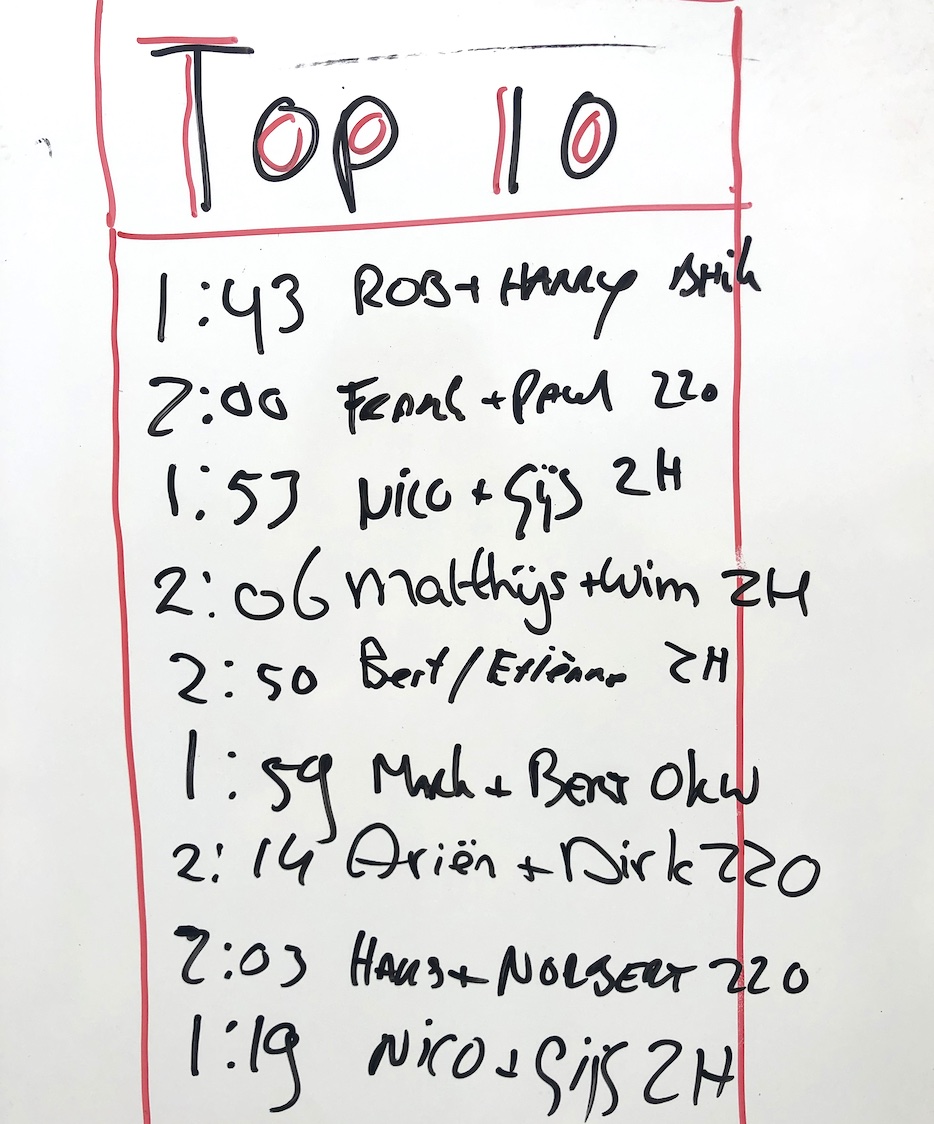 Top 10
1:43 ROB + HARRY
2:00 FRANK + PAUL 220
1:53 NICO + Gijs 2H
2:06 Matthijs + Wim 2H
2:50 Bert / Etiènne 2H
1:59 + BERT OKW
2:14 Ariën + Dirk 220
2:03 HANS + NORBERT 220
1:19 NICO + Gijs 2H